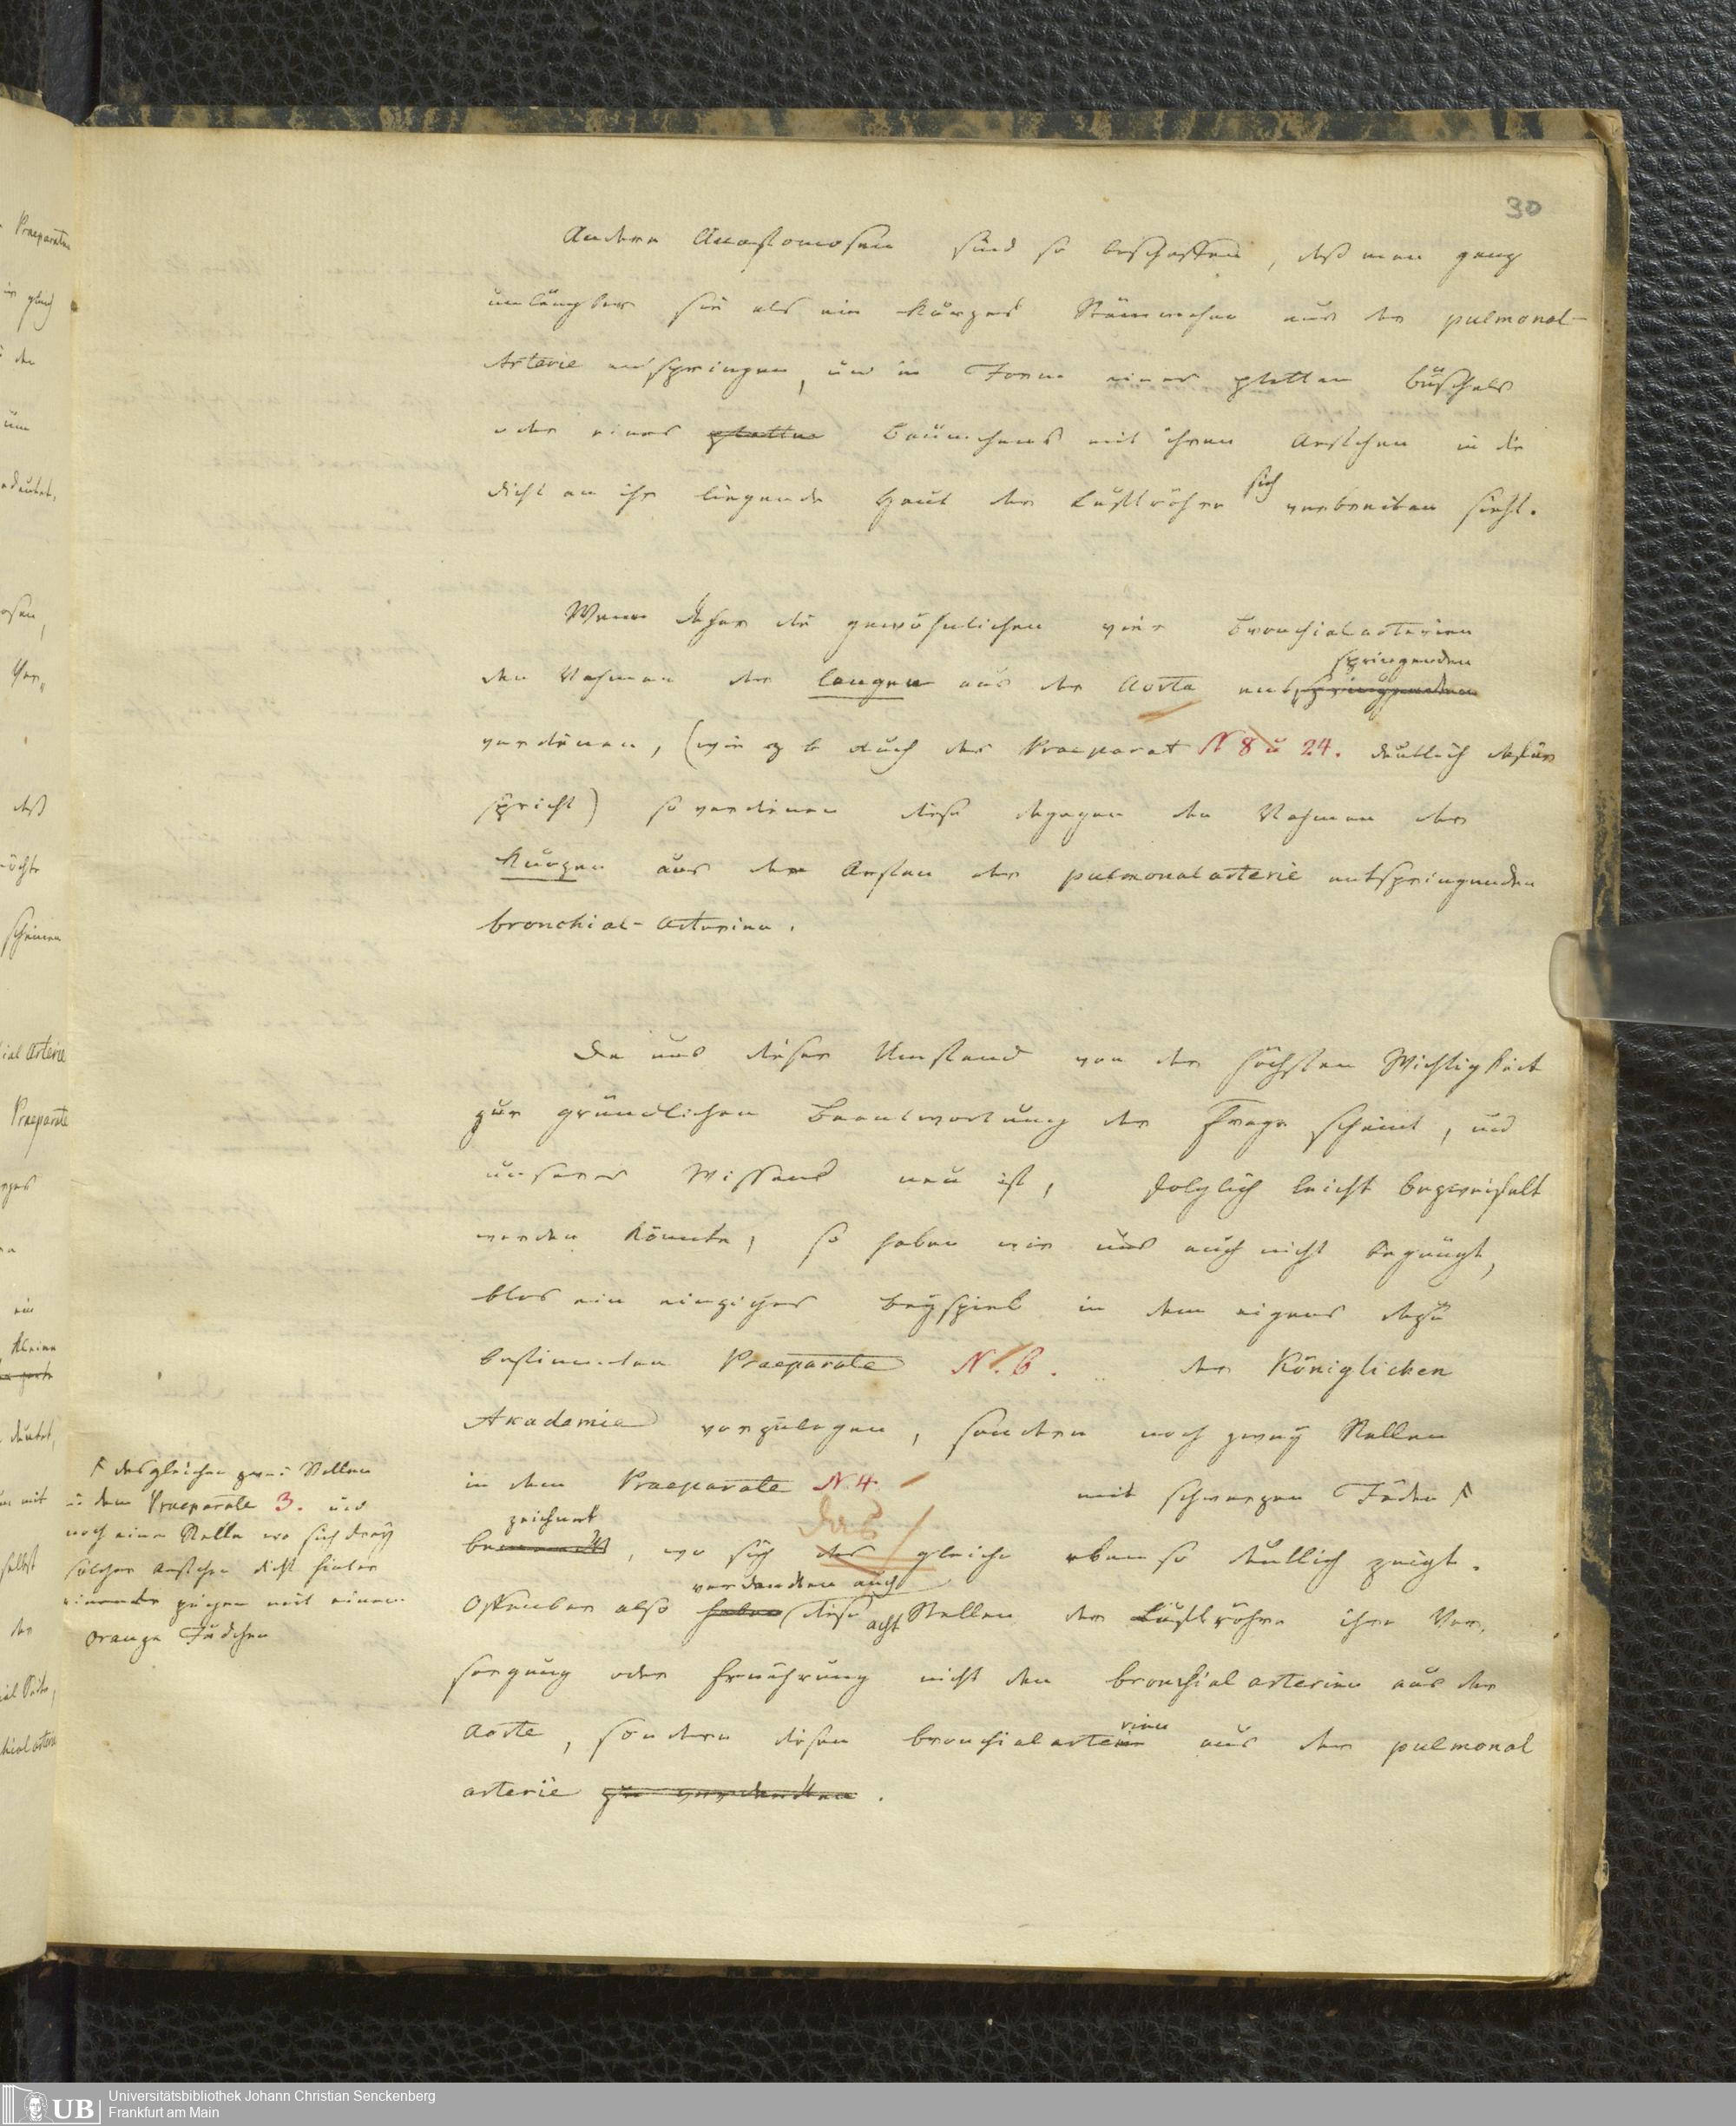 30
Andere Anastomosen sind so beschaffen, daß man ganz
unläugbar sie als ein kurzes Stämmchen aus der pulmonal-
Arterie entspringen, und in Form eines platten büschels
oder eines platten Bäumchens mit ihren Aestchen in die
dicht an ihr liegende Haut der Luftröhre sich verbreiten sieht.
Wenn daher die gewöhnlichen vier Bronchialarterien
springenden
den Nahmen der langen aus der Aorta entspringenden
verdienen, (wie z b auch das Praeparat N 8 u 24. deutlich dafür
spricht) so verdienen diese dagegen den Nahmen der
kurzen aus den Aesten der pulmonalarterie entspringenden
bronchial-Arterien.
Da uns dieser Umstand von der höchsten Wichtigkeit
zur gründlichen Beantwortung der Frage scheint, und
unseres Wissens neu ist, folglich leicht bezweifelt
werden könnte, so haben wir uns auch nicht begnügt,
blos ein einziges Beyspiel in dem eigens dazu
bestimmten Praeparate N. 6. der Königlichen
Akademie vorzulegen, sondern noch zwey Stellen
in dem Praeparate N. 4. mit schwarzen Fäden
zeichnet das
be, wo sich das gleiche eben so deutlich zeigt.
verdankten auch
Offenbar also haben diese acht Stellen der Luftröhre ihre Ver-
sorgung oder Ernährung nicht den bronchialarterien aus der
Aorte, sondern diesen bronchialarterien aus der pulmonal
arterie zu verdanken.
desgleichen zwei Stellen
in dem Praeparate 3. und
noch eine Stelle wo sich drey
solcher Aestchen dicht hinter
einander zeigen mit einem
orange Fädchen
UB
Universitätsbibliothek Johann Christian Senckenberg
Frankfurt am Main